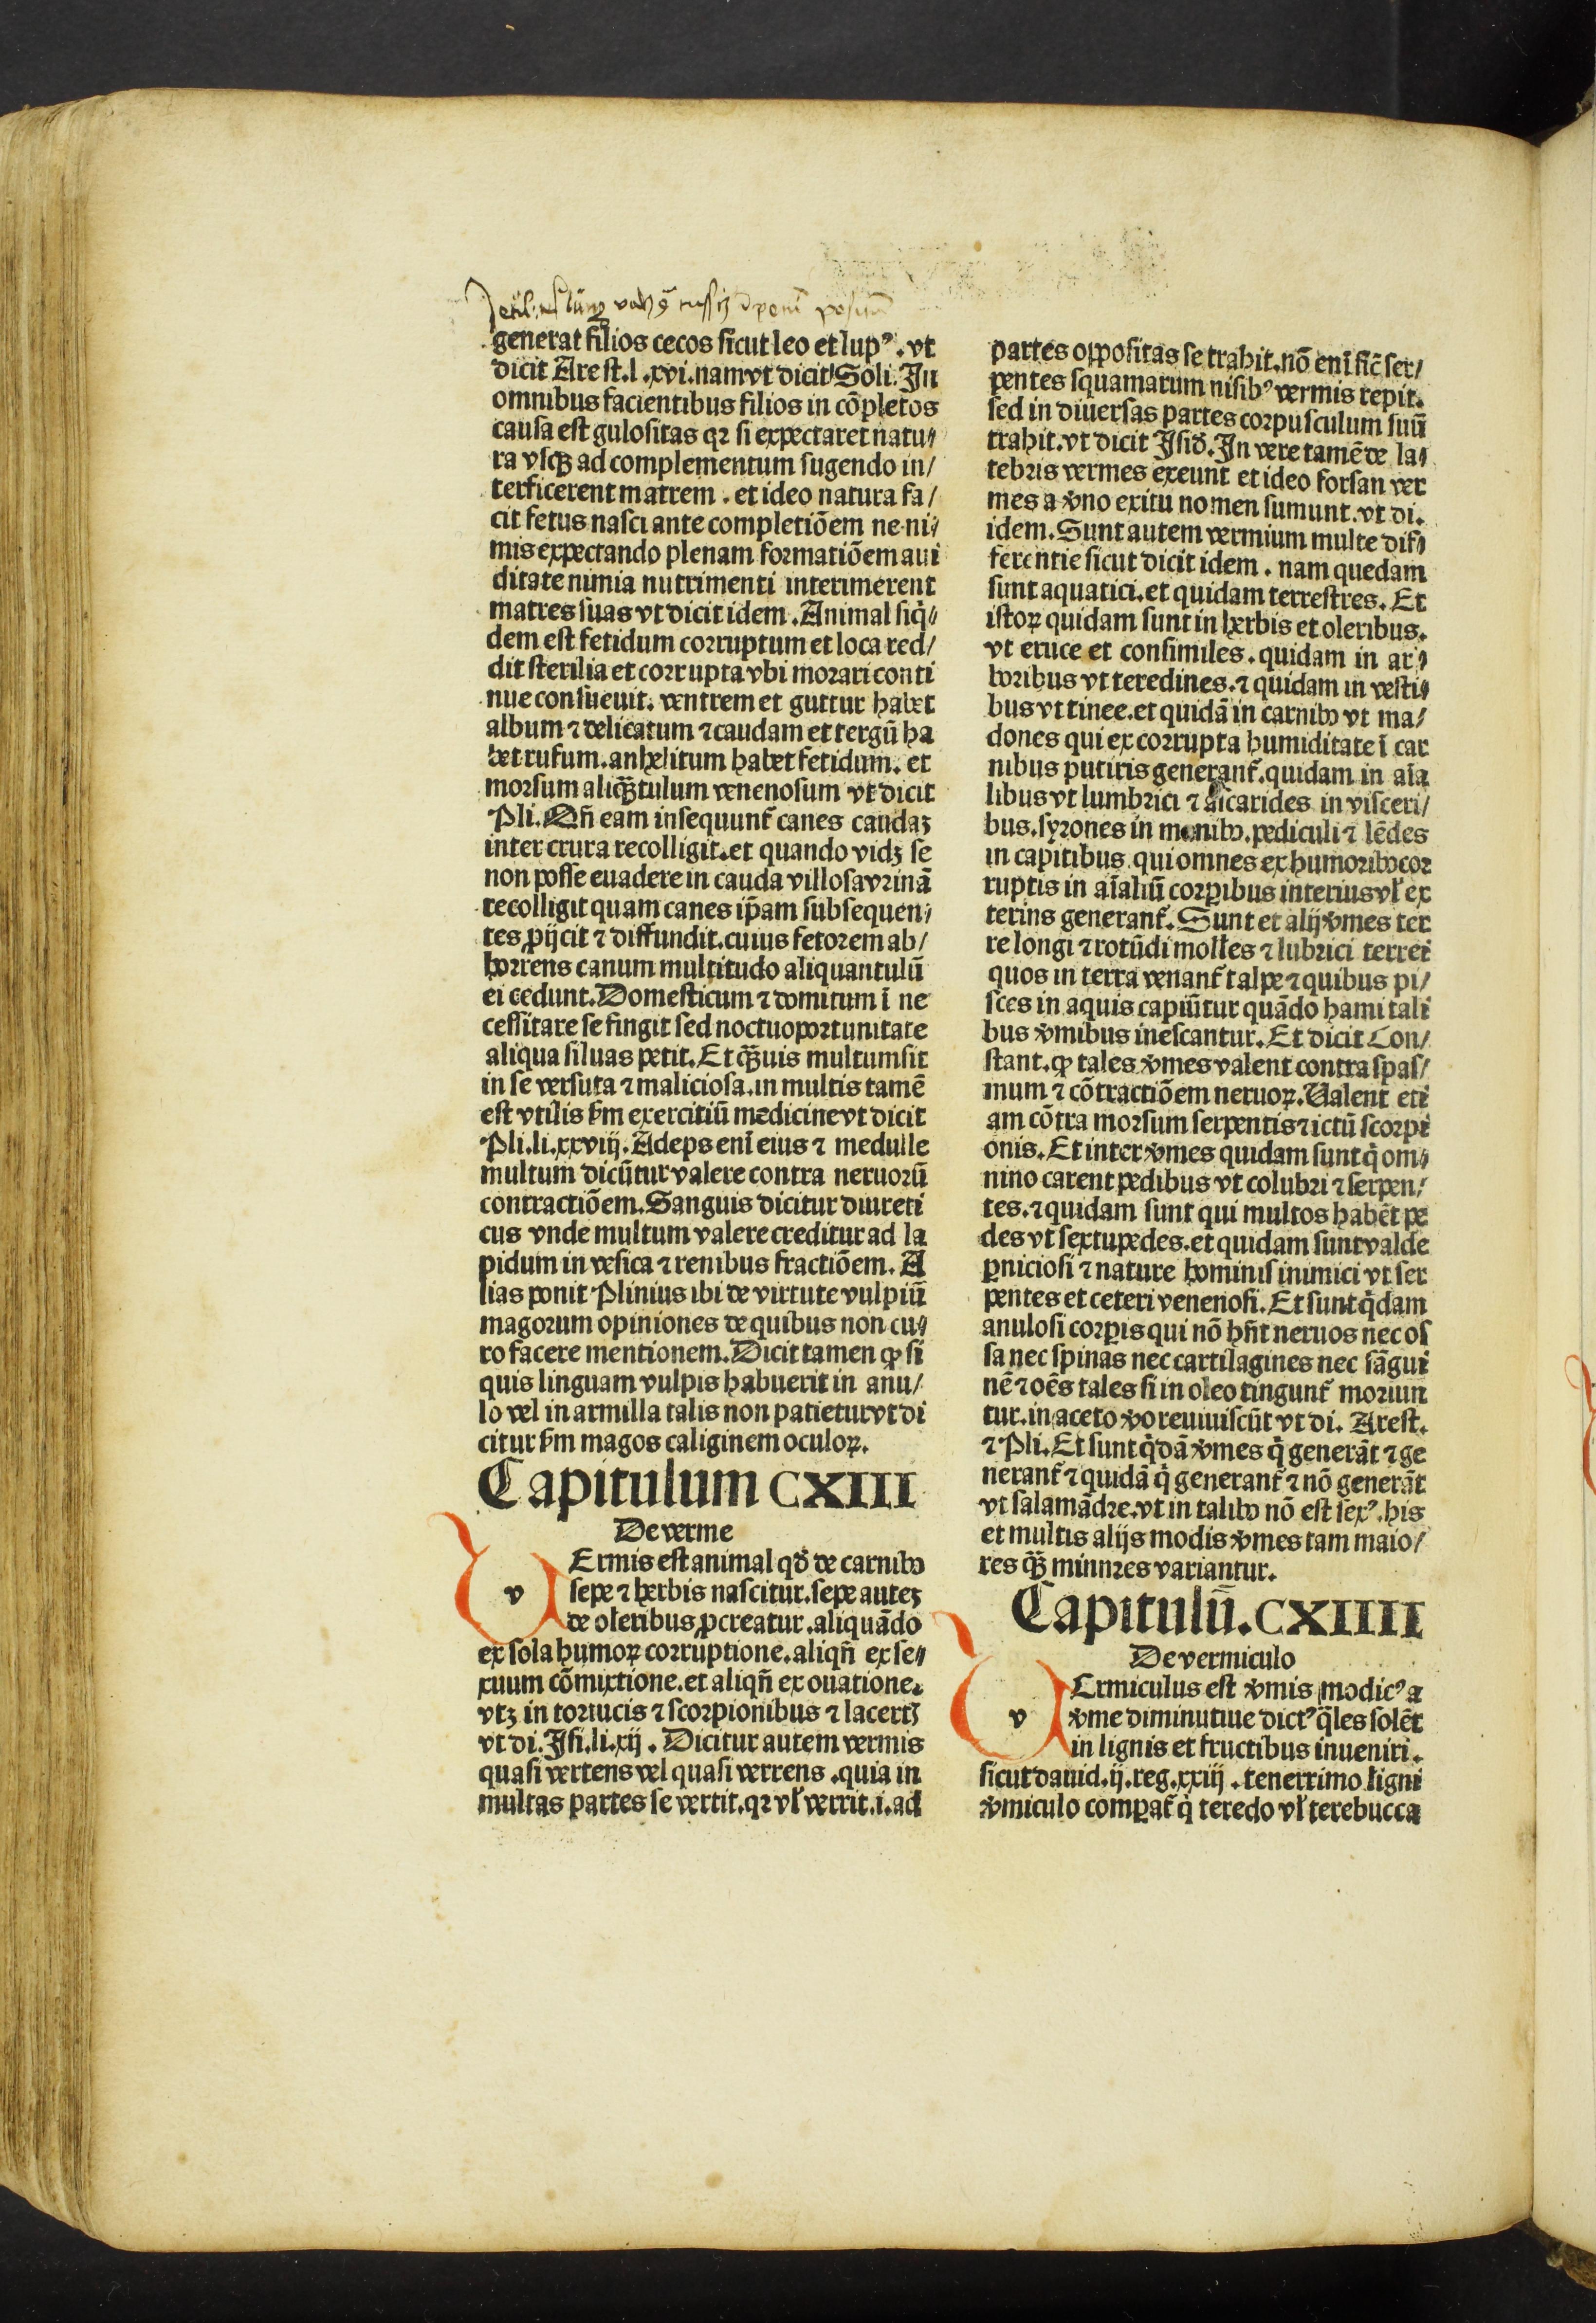 generat filios cecos sicut leo et lupꝰ. vt
dicit Arest. l. xvi. nam vt dicit Soli. In
omnibus facientibus filios in cōpletos
causa est gulositas qꝛ si expectaret natu⸗
ra vsqꝫ ad complementum sugendo in/
terficerent matrem. et ideo natura fa/
cit fetus nasci ante completiōem ne ni⸗
mis expectando plenam formatiōem aui
ditate nimia nutrimenti interimerent
matres suas vt dicit idem. Animal siq̇⸗
dem est fetidum corruptum et loca red/
dit sterilia et corrupta vbi morari conti
nue consueuit. ventrem et guttur habet
album ⁊ delicatum ⁊ caudam et tergū ha
bet rufum. anhelitum habet fetidum. et
morsum aliqꝫtulum venenosum vt dicit
Pli. Qn̄ eam insequunt̄ canes caudaꝫ
inter crura recolligit. et quando vidꝫ se
non posse euadere in cauda villosa vrinā
recolligit quam canes ip̄am subsequen⸗
tes ꝓijcit ⁊ diffundit. cuius fetorem ab/
horrens canum multitudo aliquantulū
ei cedunt. Domesticum ⁊ domitum ī ne
cessitare se fingit sed noctu oportunitate
aliqua siluas petit. Et qꝫuis multum sit
in se versuta ⁊ maliciosa. in multis tamē
est vtilis ẜm exercitiū medicine vt dicit
Pli. li. xxviij. Adeps enī eius ⁊ medulle
multum dicūtur valere contra neruorū
contractiōem. Sanguis dicitur diureti
cus vnde multum valere creditur ad la
pidum in vesica ⁊ renibus fractiōem. A
lias ponit Plinius ibi de virtute vulpiū
magorum opiniones de quibus non cu⸗
ro facere mentionem. Dicit tamen ꝙ si
quis linguam vulpis habuerit in anu/
lo vel in armilla talis non patietur vt di
citur ẜm magos caliginem oculoꝝ.
Capitulum CXIII
De verme
v
Ermis est animal qđ de carnibꝰ
sepe ⁊ herbis nascitur. sepe auteꝫ
de oleribus ꝓcreatur. aliquādo
ex sola humoꝝ corruptione. aliqn̄ ex se⸗
xuum cōmixtione. et aliqn̄ ex ouatione.
vtꝫ in tortucis ⁊ scorpionibus ⁊ lacertꝭ
vt di. Isi. li. xij. Dicitur autem vermis
quasi vertens vel quasi verrens. quia in
multas partes se vertit. qꝛ vł verrit. i. ad
partes oppositas se trahit. nō enī sic̄ ser/
pentes squamarum nisibꝰ vermis repit.
sed in diuersas partes corpusculum suū
trahit. vt dicit Isid̄. In vere tamē de la⸗
tebris vermes exeunt et ideo forsan ver
mes a ꝟno exitu nomen sumunt. vt di.
idem. Sunt autem vermium multe dif⸗
ferentie sicut dicit idem. nam quedam
sunt aquatici. et quidam terrestres. Et
istoꝝ quidam sunt in herbis et oleribus.
vt eruce et consimiles. quidam in ar⸗
boribus vt teredines. ⁊ quidam in vesti⸗
bus vt tinee. et quidā in carnibꝰ vt ma/
dones qui ex corrupta humiditate ī car
nibus putiris generant̄. quidam in aīa
libus vt lumbrici ⁊ aicarides in visceri/
bus. syrones in monibꝰ. pediculi ⁊ lēdes
in capitibus qui omnes ex humoribꝰ cor
ruptis in aīaliū corꝑibus interius vł ex
terins generant̄. Sunt et alij ꝟmes ter
re longi ⁊ rotūdi molles ⁊ lubrici terrei
quos in terra venant̄ talpe ⁊ quibus pi/
sces in aquis capiūtur quādo hami tali
bus ꝟmibus inescantur. Et dicit Con/
stant. ꝙ tales ꝟmes valent contra spas/
mum ⁊ cōtractiōem neruoꝝ. Ualent eti
am cōtra morsum serpentis ⁊ ictū scorpi
onis. Et inter ꝟmes quidam sunt q̇ om⸗
nino carent pedibus vt colubri ⁊ serpen/
tes. ⁊ quidam sunt qui multos habēt pe
des vt sextupedes. et quidam sunt valde
ꝑniciosi ⁊ nature hominis inimici vt ser
pentes et ceteri venenosi. Et sunt q̇dam
anulosi corꝑis qui nō hn̄t neruos nec os
sa nec spinas nec cartilagines nec sāgui
nē ⁊ oēs tales si in oleo tingunt̄ moriun
tur. in aceto ꝟo reuiuiscūt vt di. Arest.
⁊ Pli. Et sunt q̇dā ꝟmes q̇ generāt ⁊ ge
nerant̄ ⁊ quidā q̇ generant̄ ⁊ nō generāt
vt salamādre. vt in talibꝰ nō est sexꝰ. his
et multis alijs modis ꝟmes tam maio/
res qꝫ minnres variantur.
Capitulū. CXIIII
De vermiculo
v
Ermiculus est ꝟmis modicꝰ a
ꝟme diminutiue dictꝰ q̄les solēt
in lignis et fructibus inueniri.
sicut dauid. ij. reg. xxiij. tenerrimo ligni
ꝟmiculo comꝑat̄ q̇ teredo vł terebucca